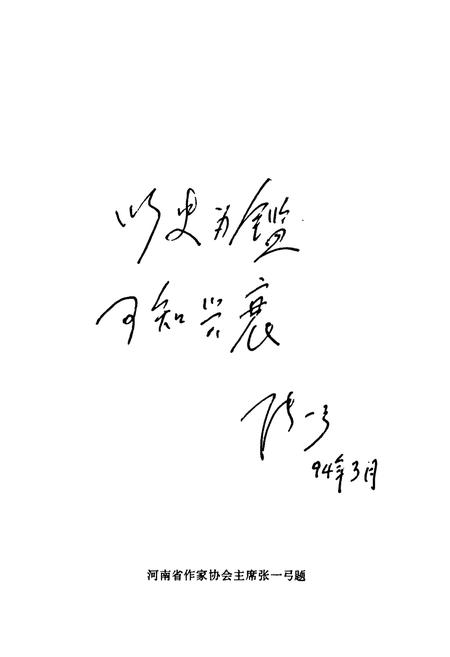 以史为鉴
可知兴衰
张一弓
94年3月
河南省作家协会主席张一弓题